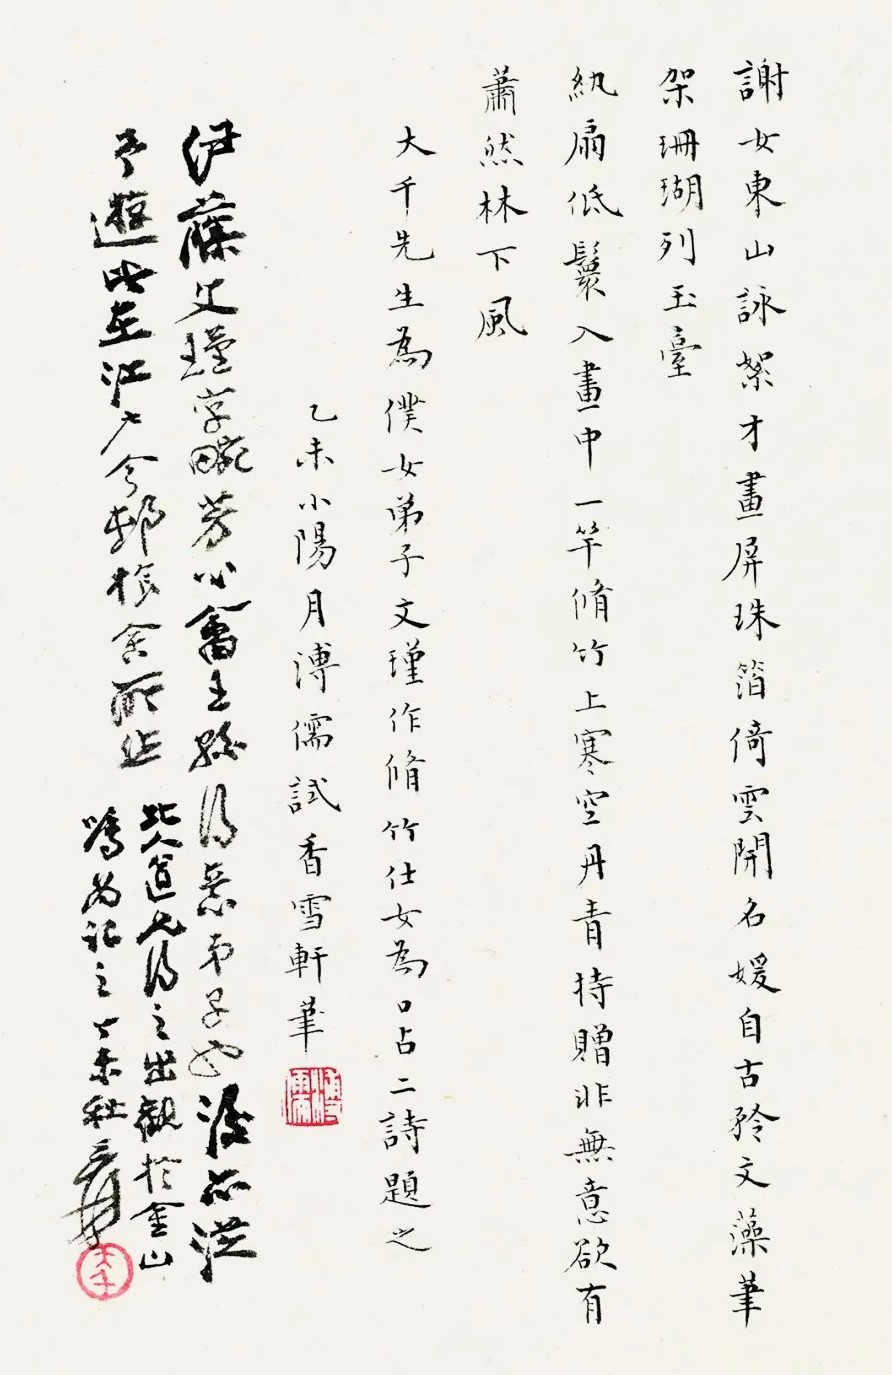 謝女東山詠絮才畫屏珠箔倚雲開名媛自古矜文藻筆
架珊瑚列玉臺
紈扇低鬟入畫中一竿脩竹上寒空丹青持贈非無意欲有
蕭然林下風
大千先生為僕女弟子文瑾作脩竹仕女為口占二詩題之
乙未小陽月溥儒試香雪軒筆
溥儒
伊藤文瑾字畹芳心畬王孫得意弟子也後亦從
予遊此在江戶今邨旅舍所作
人道兄得之出觀於金山
囑為記之丁未秋爰
大千